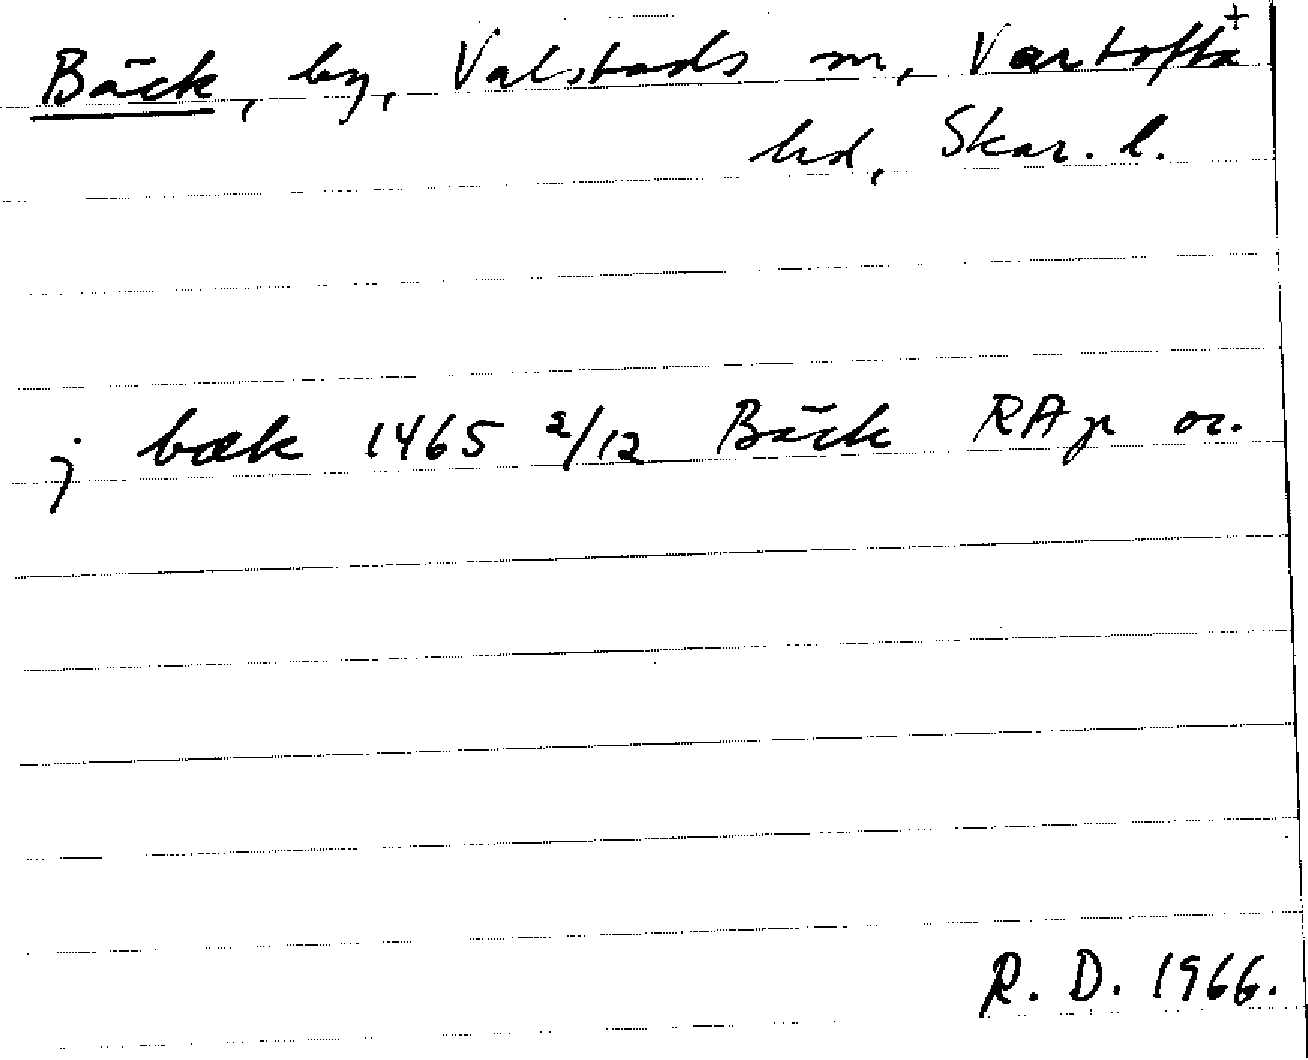 Bäck, by, Valstads sn, Vartofta +
hd, Skar. l.
j bæk 1465 2/12 Bäck RAp or.
R. D. 1966.